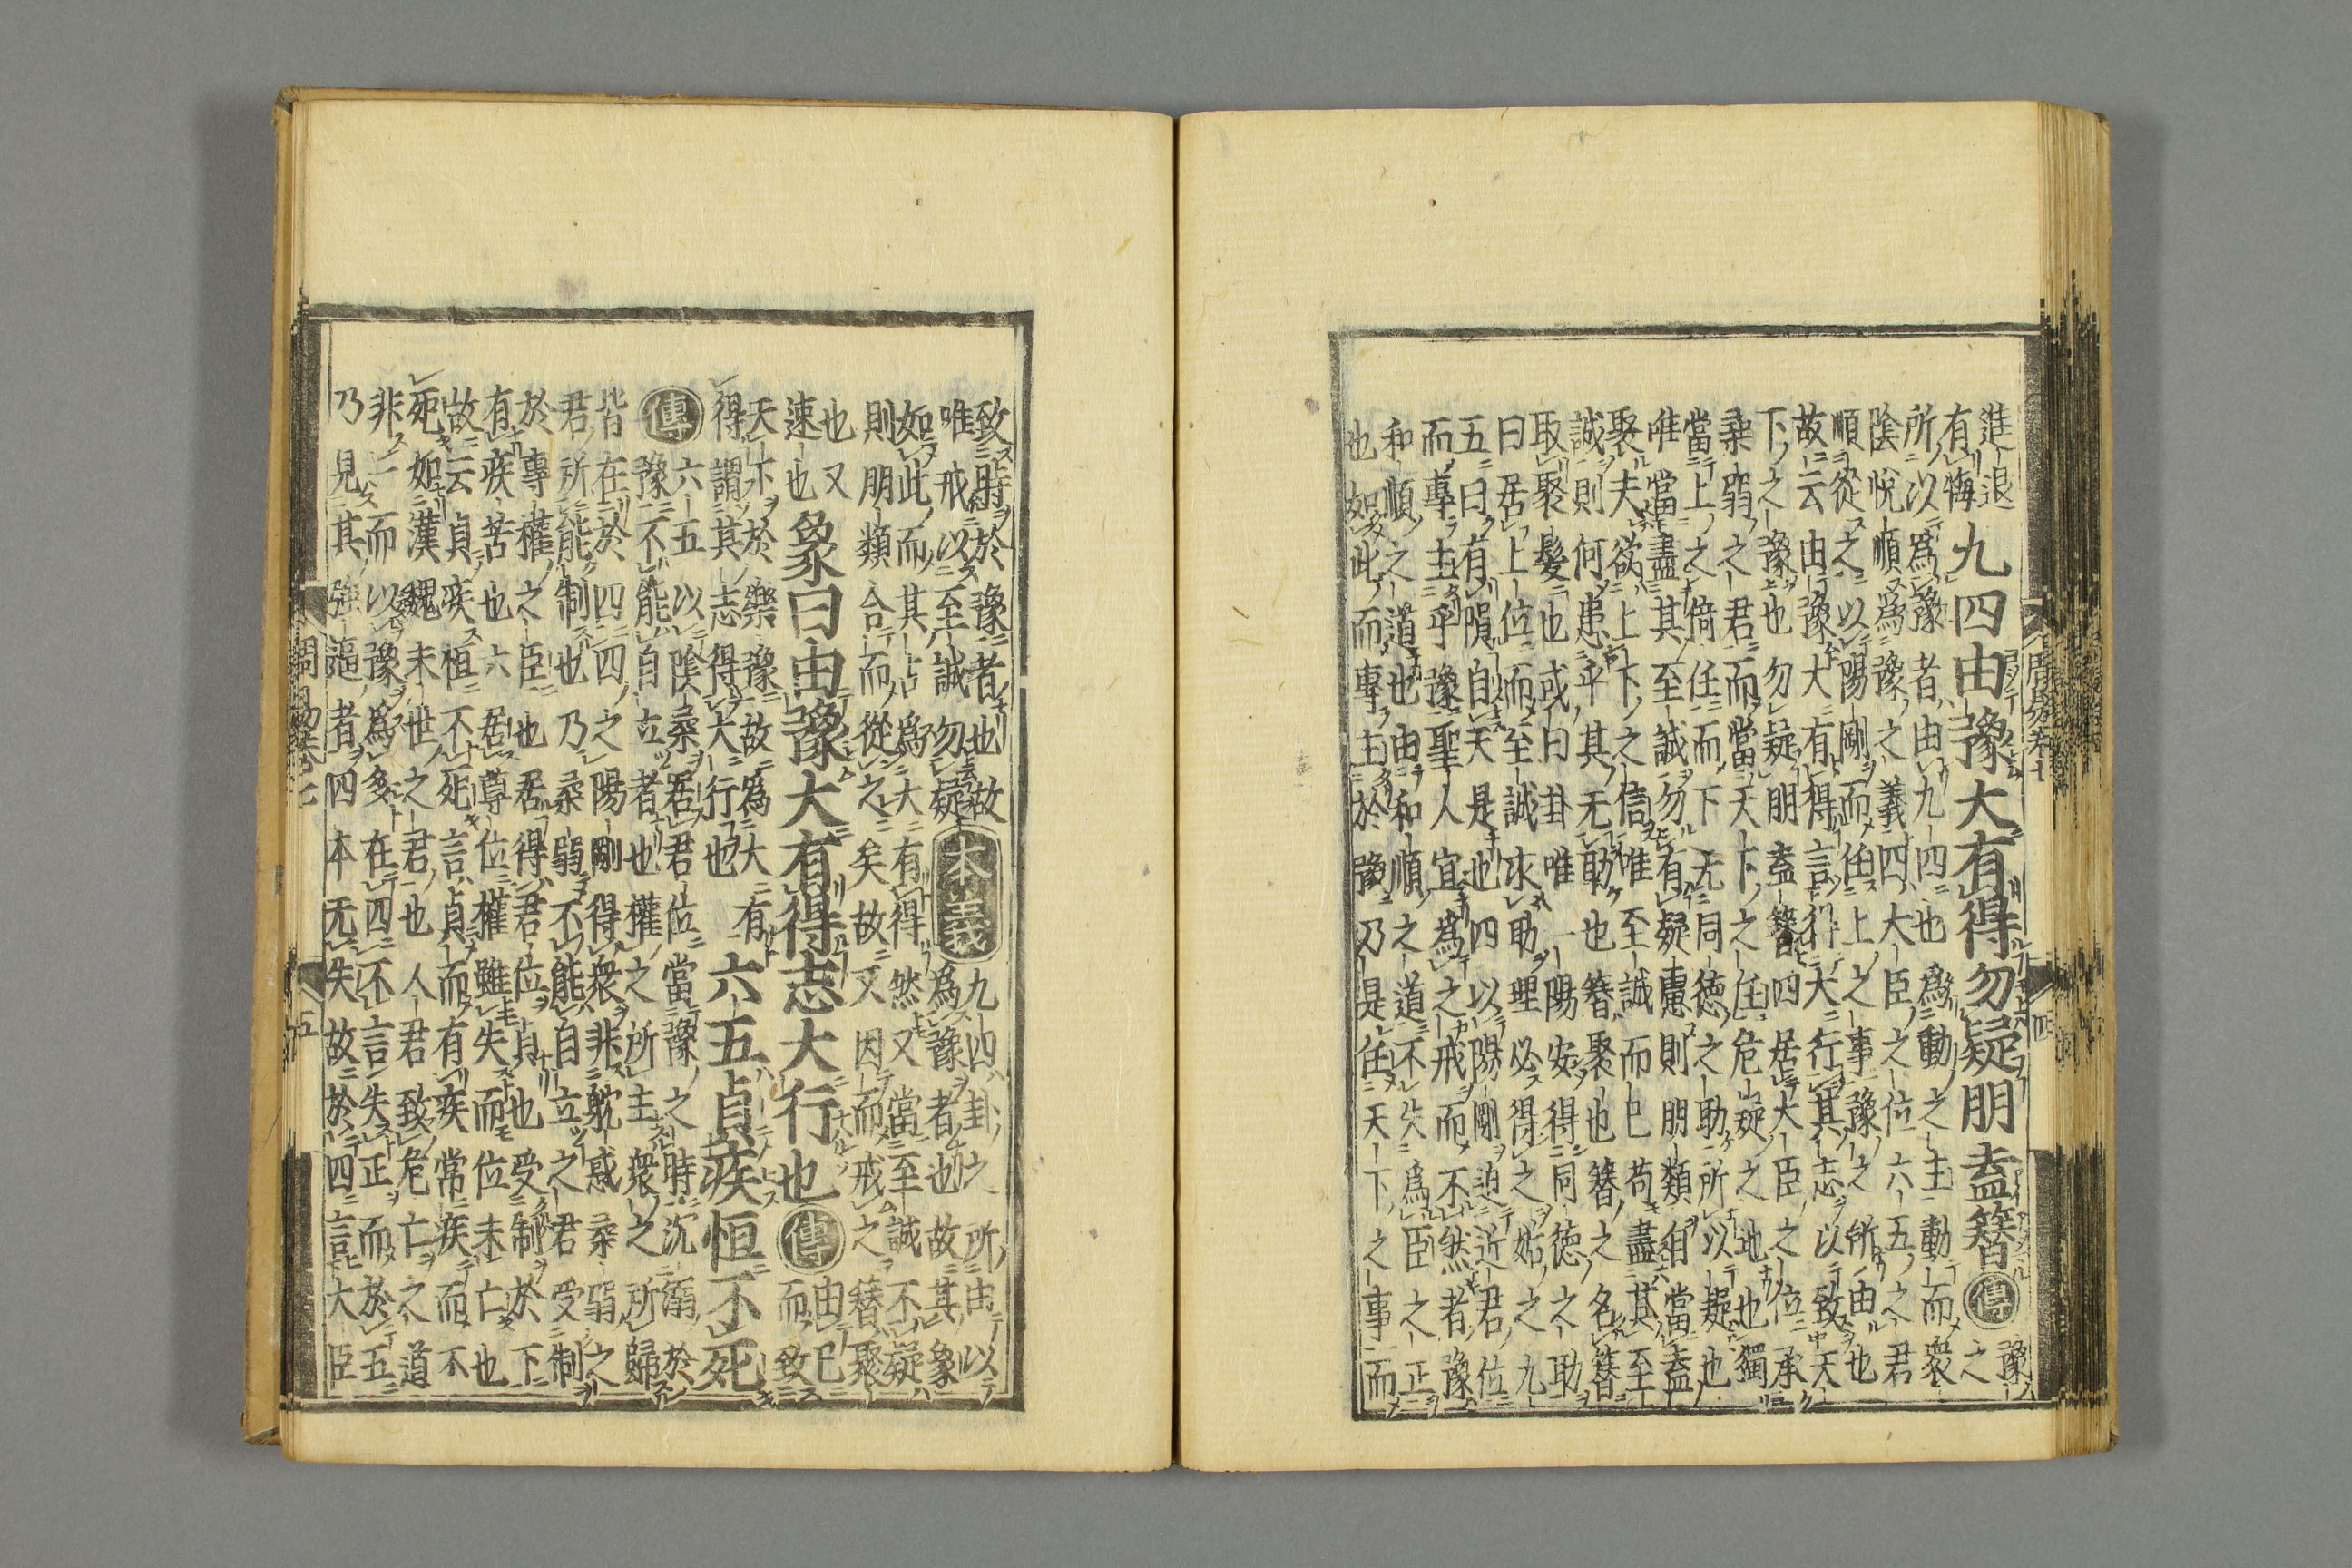 進退
有悔
九四由豫大有得勿疑朋盍簪
傳
豫
之
所以為豫者由九四也為動之主動而衆
陰悅順為豫之義四大臣之位六五之君
順從之以陽剛而任上之事豫之所由也
故云由豫大有得言行大行其志以致天
下之豫也勿疑朋盍簪四居大臣之位承
柔弱之君而當天下之任危疑之地也獨
當上之倚任而下无同德之助所以疑也
唯當盡其至誠勿有疑慮則朋類自當盍
聚夫欲上下之信唯至誠而已苟盡其至
誠則何患乎其无助也簪聚也簪之名簪
取聚髮也或曰卦唯一陽安得同德之助
曰居上位而至誠求助理必得之姤之九
五曰有隕自天是也四以陽剛迫近君位
而專主乎豫聖人宜為之戒而不然者豫
和順之道也由和順之道不失為臣之正
也如此而專主於豫乃是任天下之事而
周易卷七
四
致時於豫者也故
唯戒以至誠勿疑
本義
九四卦之所由以
為豫者也故其象
如此而其占為大有得然又當至誠不疑
則朋類合而從之矣故又因而戒之簪聚
也又
速也
象曰由豫大有得志大行也
傳
由已
而致
天下於樂豫故為大有
得謂其志得大行也
六五貞疾恒不死
傳
六五以陰柔居君位當豫之時沉溺於
豫不能自立者也權之所主衆之所歸
皆在於四四之陽剛得衆非耽惑柔弱之
君所能制也乃柔弱不能自立之君受制
於專權之臣也居得君位貞也受制於下
有疾苦也六居尊位權雖失而位未亡也
故云貞疾恒不死言貞而有疾常疾而不
死如漢魏末世之君也人君致危亡之道
非一而以豫為多在四不言失正而於五
乃見其強逼者四本无失故於四言大臣
周易卷七
五